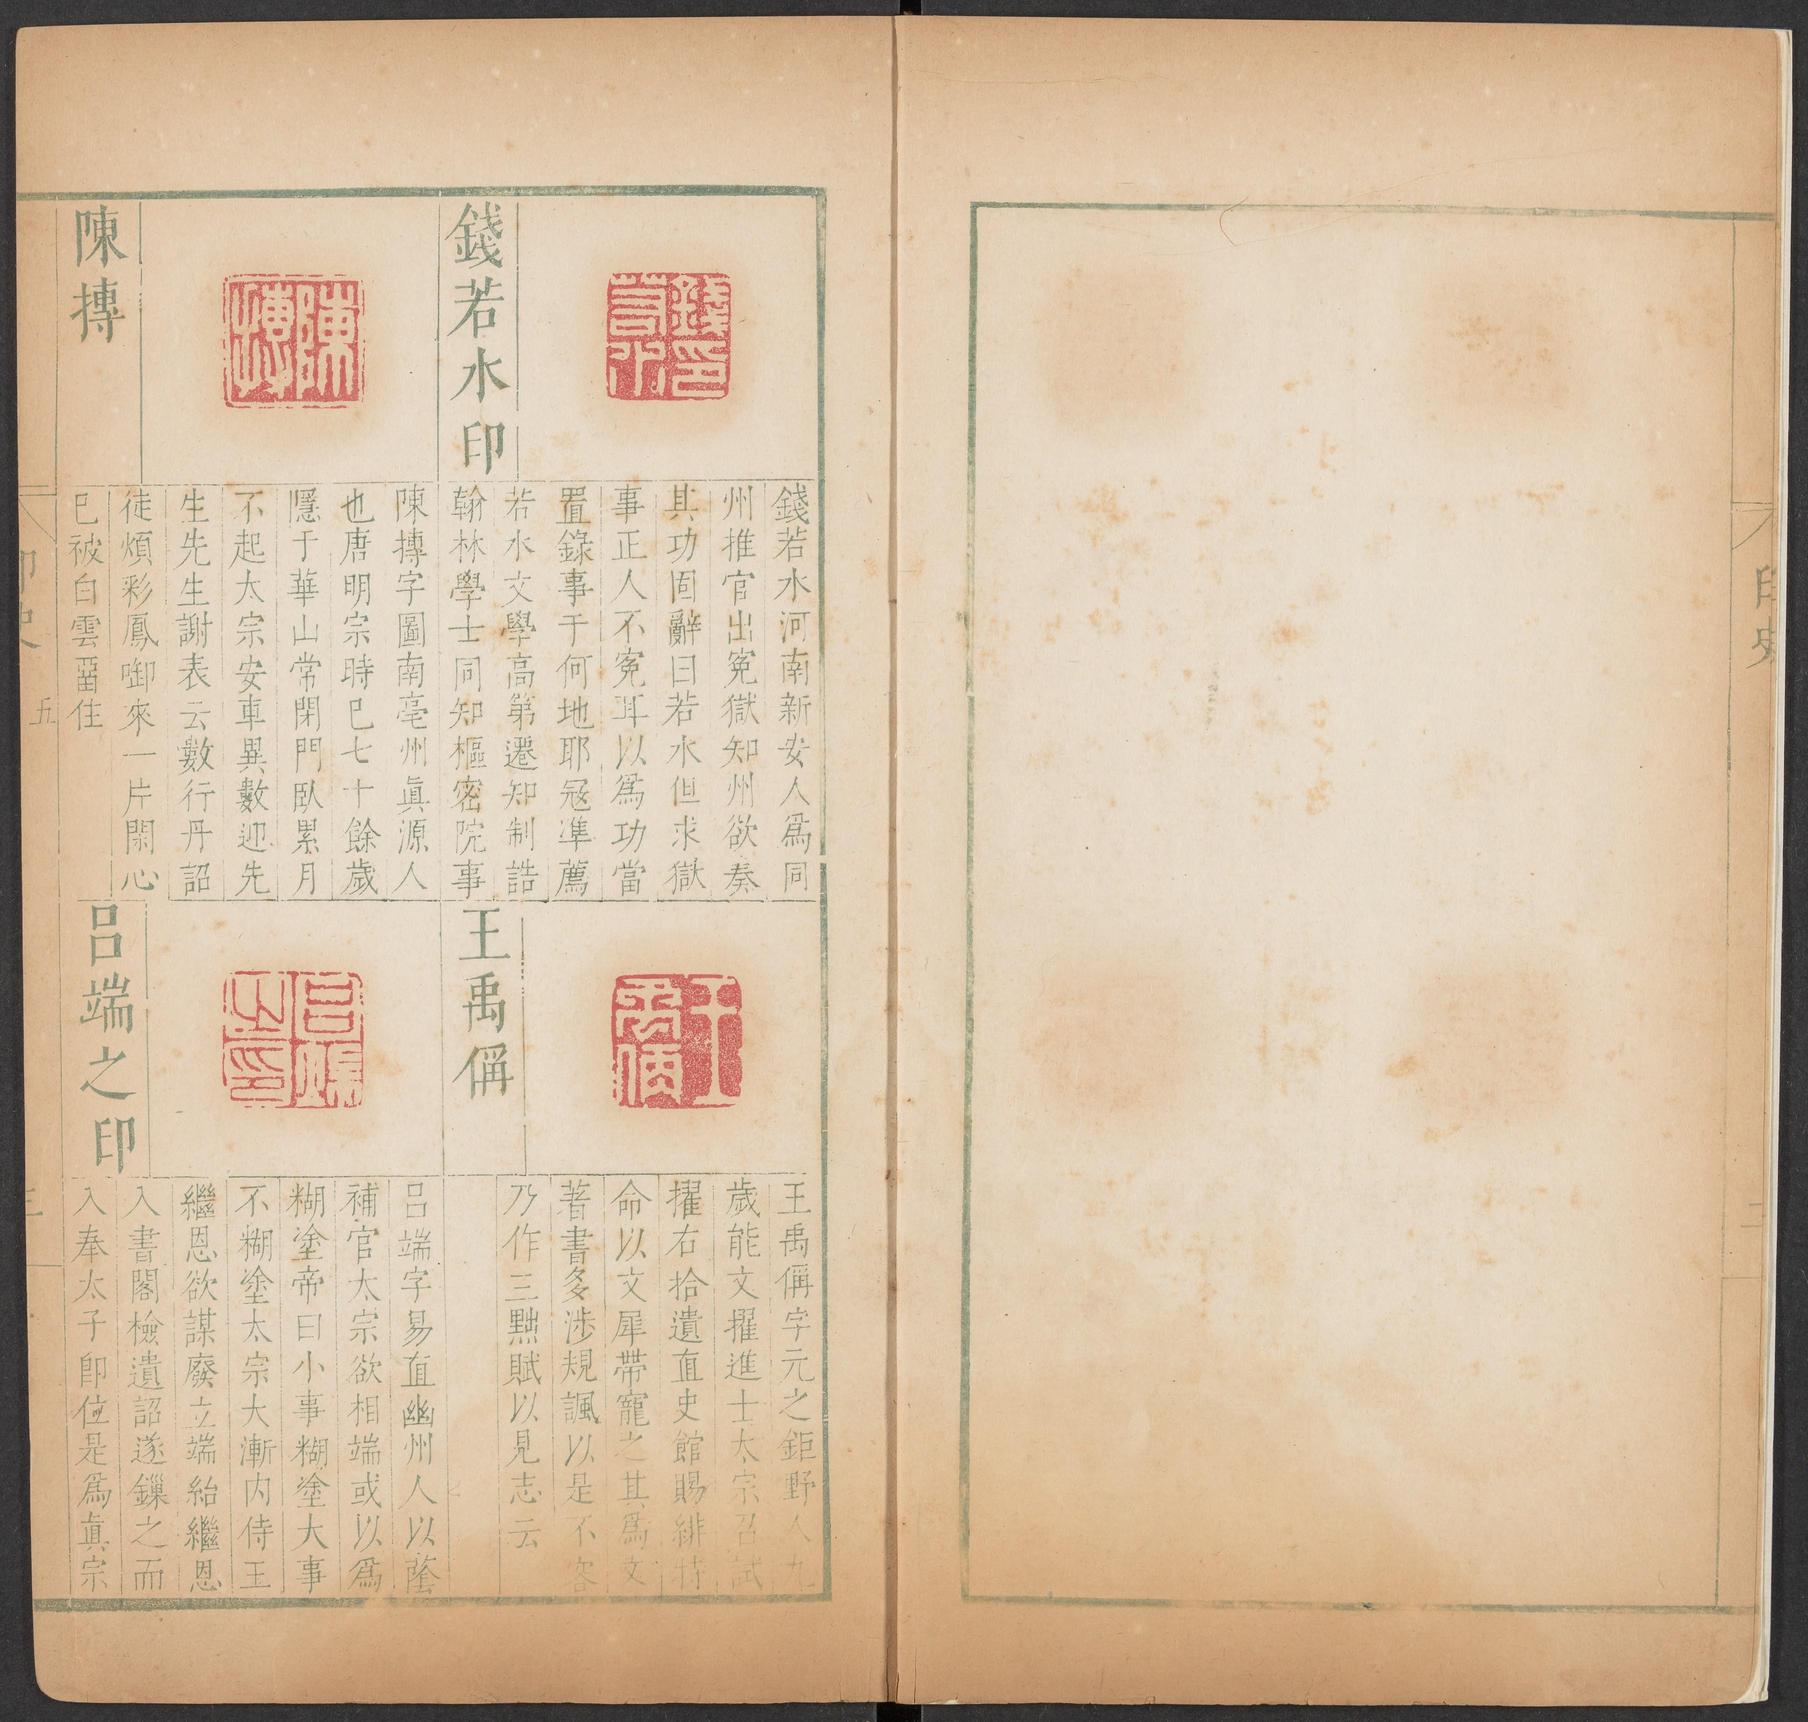 印史
二
錢若水印
錢若水河南新安人爲同
州推官出寃獄知州欲奏
其功固辭曰若水但求獄
事正人不寃耳以爲功當
置錄事于何地耶寇準薦
若水文學高第遷知制誥
翰林學士同知樞密院事
陳摶
陳摶字圖南亳州眞源人
也唐明宗時巳七十餘歲
隱于華山常閉門臥累月
不起太宗安車異數迎先
生先生謝表云數行丹詔
徒煩彩鳳啣來一片閑心
巳被白雲畱住
王禹偁
王禹偁字元之鉅野人九
歲能文擢進士太宗召試
擢右拾遺直史館賜緋特
命以文犀帶寵之其爲文
著書多涉規諷以是不容
乃作三黜賦以見志云
呂端之印
呂端字易直幽州人以蔭
補官太宗欲相端或以爲
糊塗帝曰小事糊塗大事
不糊塗太宗大漸内侍王
繼恩欲謀廢立端紿繼恩
入書閣檢遺詔遂鏁之而
入奉太子卽位是爲眞宗
印史
五
三
錢印若水
陳摶
王禹偁
呂端之印